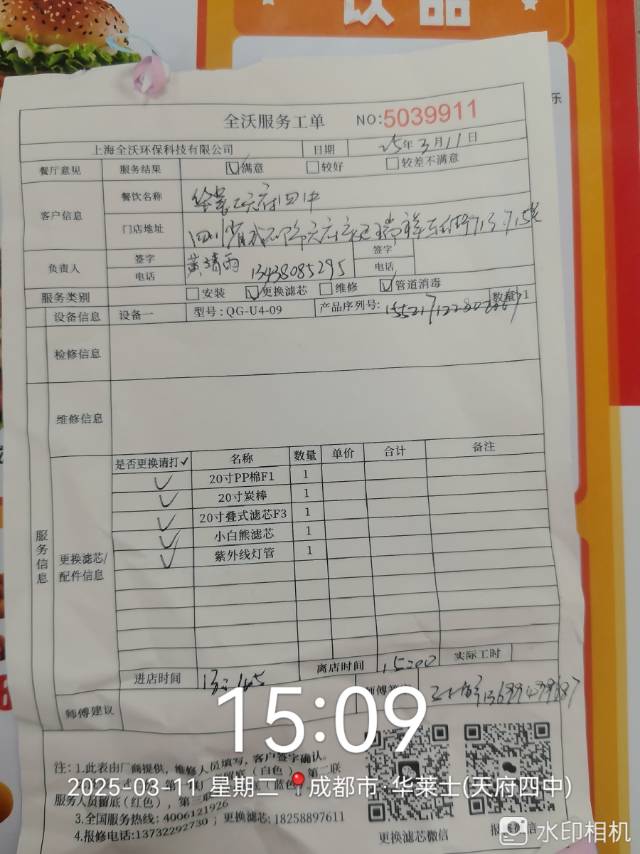 饮品
乐
全沃服务工单 NO:5039911
上海全沃环保科技有限公司 日期 25年3月11日
餐厅意见 服务结果 ☑满意 □较好 □较差不满意
客户信息 餐饮名称 华莱士天府四中
门店地址 四川省成都市天府
负责人 签字 黄靖雨 签字
电话 13438085295 电话
服务类别 □安装 ☑更换滤芯 □维修 ☑管道消毒
设备信息 设备一 型号:QG-U4-09 产品序列号: 数量 1
检修信息
维修信息
服务信息
更换滤芯/配件信息
是否更换请打✓ 名称 数量 单价 合计 备注
✓ 20寸PP棉F1 1
✓ 20寸炭棒 1
✓ 20寸叠式滤芯F3 1
✓ 小白熊滤芯 1
✓ 紫外线灯管 1
进店时间 离店时间 实际工时
师傅建议
15:09
注:1.此表由厂商提供,维修人员填写,客户签字确认。
2025-03-11 星期二 成都市·华莱士(天府四中)
服务人员留底(红色),第三联
3.全国服务热线:4006121926
4.报修电话:13732292730;更换滤芯:18258897611
更换滤芯微信
水印相机